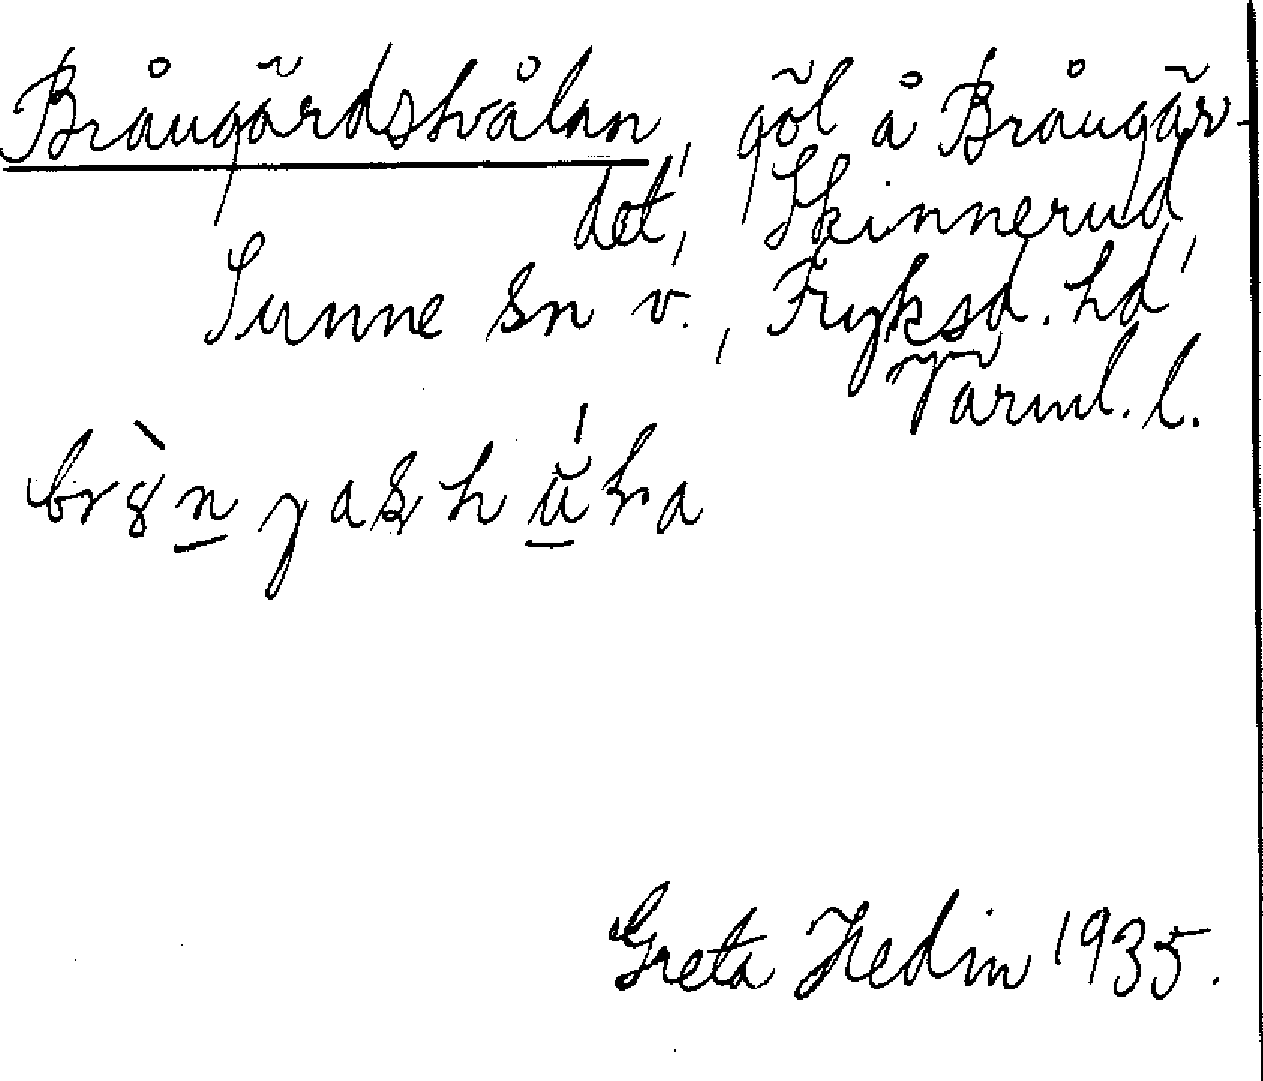 Bråugärdshvålan, göl å Bråugär-
det, Skinnerud,
Sunne sn v., Fryksd. hd,
Värml. l.
Greta Hedin 1935.